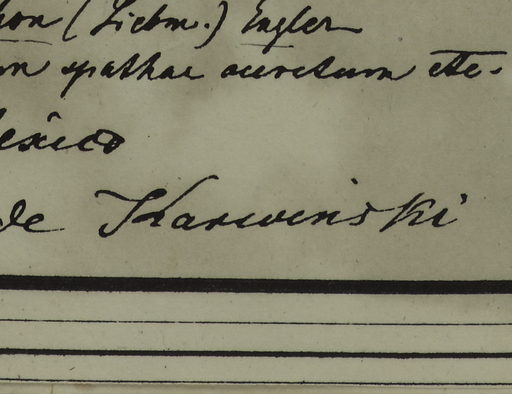 hon (Liebm.) Engler
on spathae acretum etc.
éxico
de Karwinski